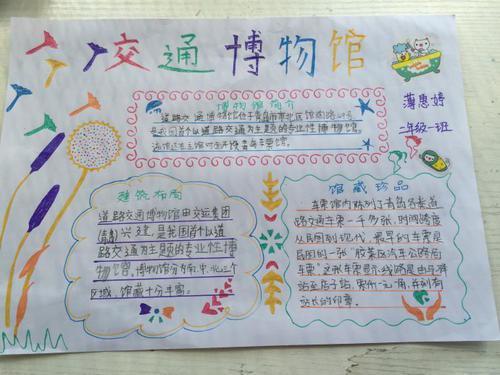 交通博物馆
薄惠婷
二年级一班
博物馆简介
道路交通博物馆位于青岛市市北区馆陶路49号
是我国首个以道路交通为主题的专业性博物馆。
建筑布局
道路交通博物馆由交运集团
(青岛)兴建,是我国首个以道
路交通为主题的专业性博
物馆。博物馆分为南,中,北三个
区域,馆藏十分丰富。
馆藏珍品
车票馆内陈列了青岛各类道
路交通车票一千多张,时间跨度
从民国到现代,最早的车票是
民国的一张"胶莱区汽车公路局
车票"这张车票显示线路是由马驿
站至店子站,票价一元一角,并刻有
站长的印章。